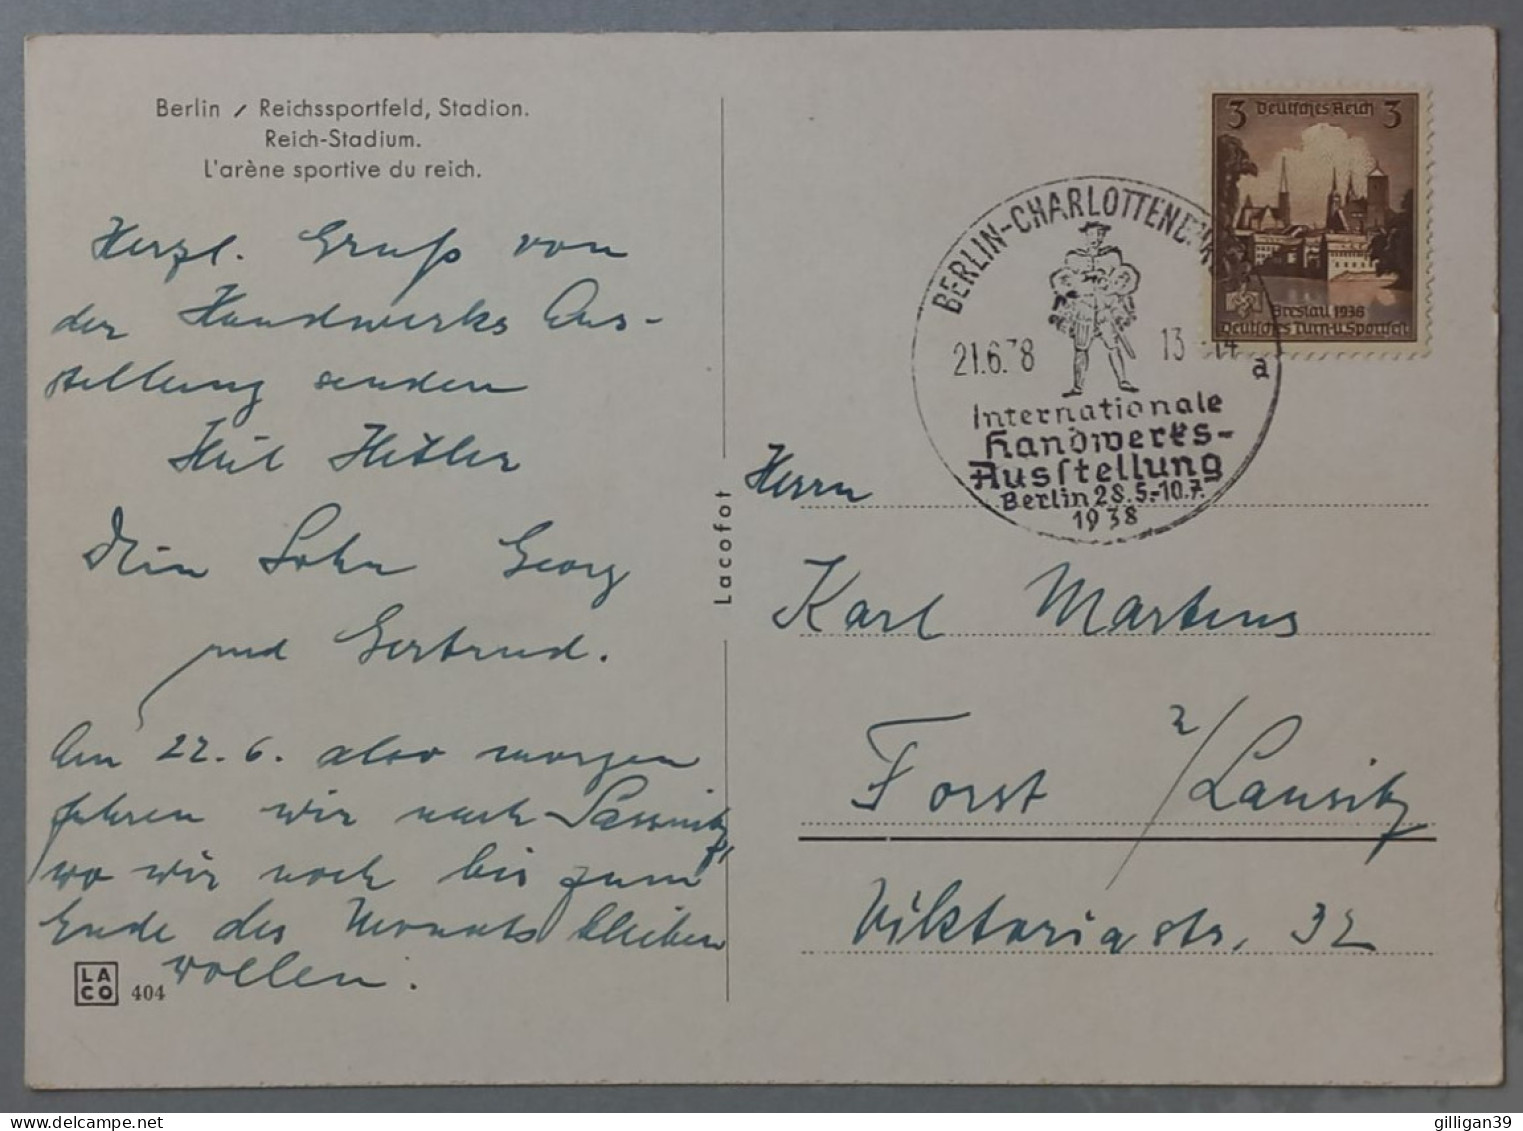 Berlin / Reichssportfeld, Stadion.
Reich-Stadium.
L'arène sportive du reich.
Herzl. Gruß von
der Handwerks Aus-
stellung senden
Heil Hitler
Dein Sohn Georg
und Gertrud.
Am 22.6. also morgen
fahren wir nach Sassnitz,
wo wir noch bis zum
Ende des Monats bleiben
wollen.
LA
CO
404
Lacofot
3 Deutsches Reich 3
Breslau 1938
Deutsches Turn-u.Sportfest
BERLIN-CHARLOTTENBURG
21.6.38
13 -14
a
Internationale
Handwerks-
Ausstellung
Berlin 28.5.-10.7.
1938
Herrn
Karl Martens
Forst /Lausitz
Viktoriastr. 32
gilligan39